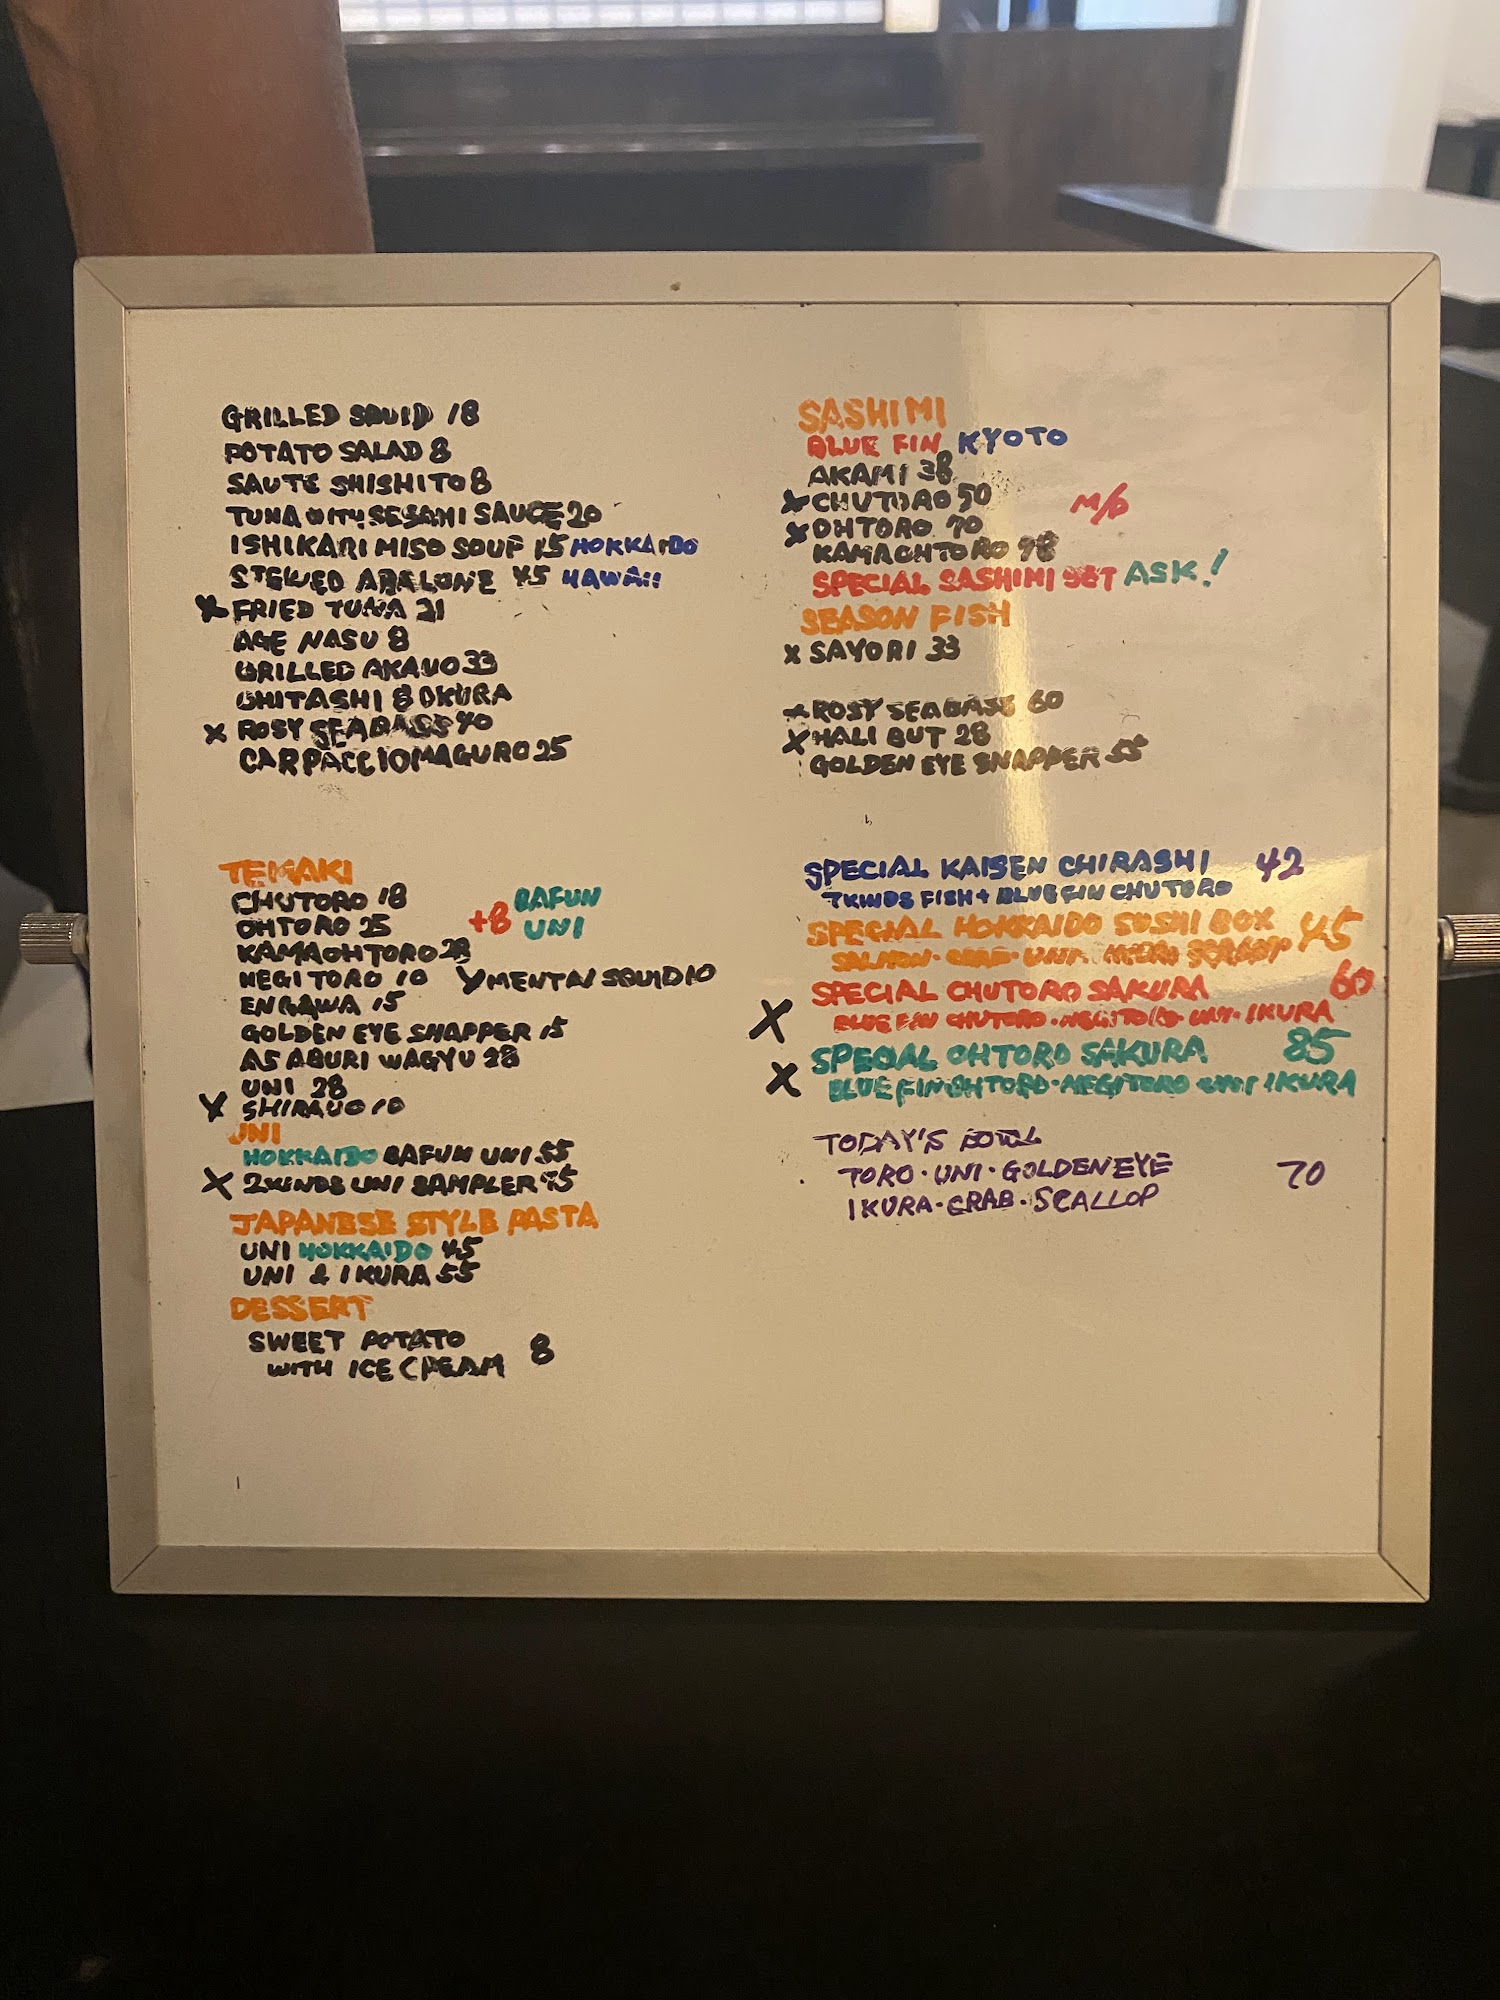 GRILLED SQUID 18
POTATO SALAD 8
SAUTE SHISHITO 8
TUNA WITH SESAMI SAUCE 20
ISHIKARI MISO SOUP 15 HOKKAIDO
STEWED ABALONE 45 HAWAII
X FRIED TUNA 21
AGE NASU 8
GRILLED AKAUO 33
OHITASHI 8 OKURA
X ROSY SEABASS 40
CARPACCIO MAGURO 25
TEMAKI
CHUTORO 18
OHTORO 25
KAMAOHTORO 28
+8 BAFUN
UNI
NEGITORO 10
MENTAI SQUID 10
ENGAWA 15
GOLDEN EYE SNAPPER 15
A5 ABURI WAGYU 28
UNI 28
X SHIRAUO 10
UNI
HOKKAIDO BAFUN UNI 55
X 2KINDS UNI SAMPLER 45
JAPANESE STYLE PASTA
UNI HOKKAIDO 45
UNI & IKURA 55
DESSERT
SWEET POTATO
WITH ICE CREAM 8
SASHIMI
BLUE FIN KYOTO
AKAMI 38
X CHUTORO 50
M/6
X OHTORO 70
KAMAOHTORO 98
SPECIAL SASHIMI SET ASK!
SEASON FISH
X SAYORI 33
X ROSY SEABASS 60
X HALI BUT 28
GOLDEN EYE SNAPPER 55
SPECIAL KAISEN CHIRASHI 42
7KINDS FISH + BLUE FIN CHUTORO
SPECIAL HOKKAIDO SUSHI BOX 45
SALMON · CRAB · UNI
X SPECIAL CHUTORO SAKURA 60
BLUE FIN CHUTORO · NEGITORO · UNI · IKURA
X SPECIAL OHTORO SAKURA 85
BLUE FIN OHTORO · NEGITORO UNI IKURA
TODAY'S BOWL
TORO · UNI · GOLDENEYE 70
IKURA · CRAB · SCALLOP